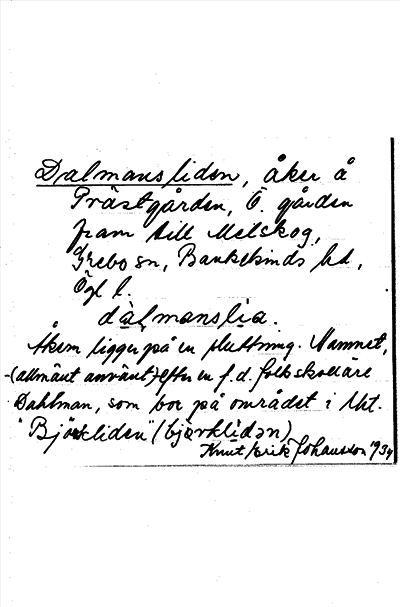 Dalmansliden, åker å
Prästgården, Ö. gården
fram till Melskog,
Grebo sn, Bankekinds hd,
Ögl l.
dalmanslia.
Åkern ligger på en sluttning. Namnet,
(allmänt använt) efter en f.d. folkskollärare
Dahlman, som bor på området i
"Björkliden" (bjærklidən)
Knut Erik Johansson 1934